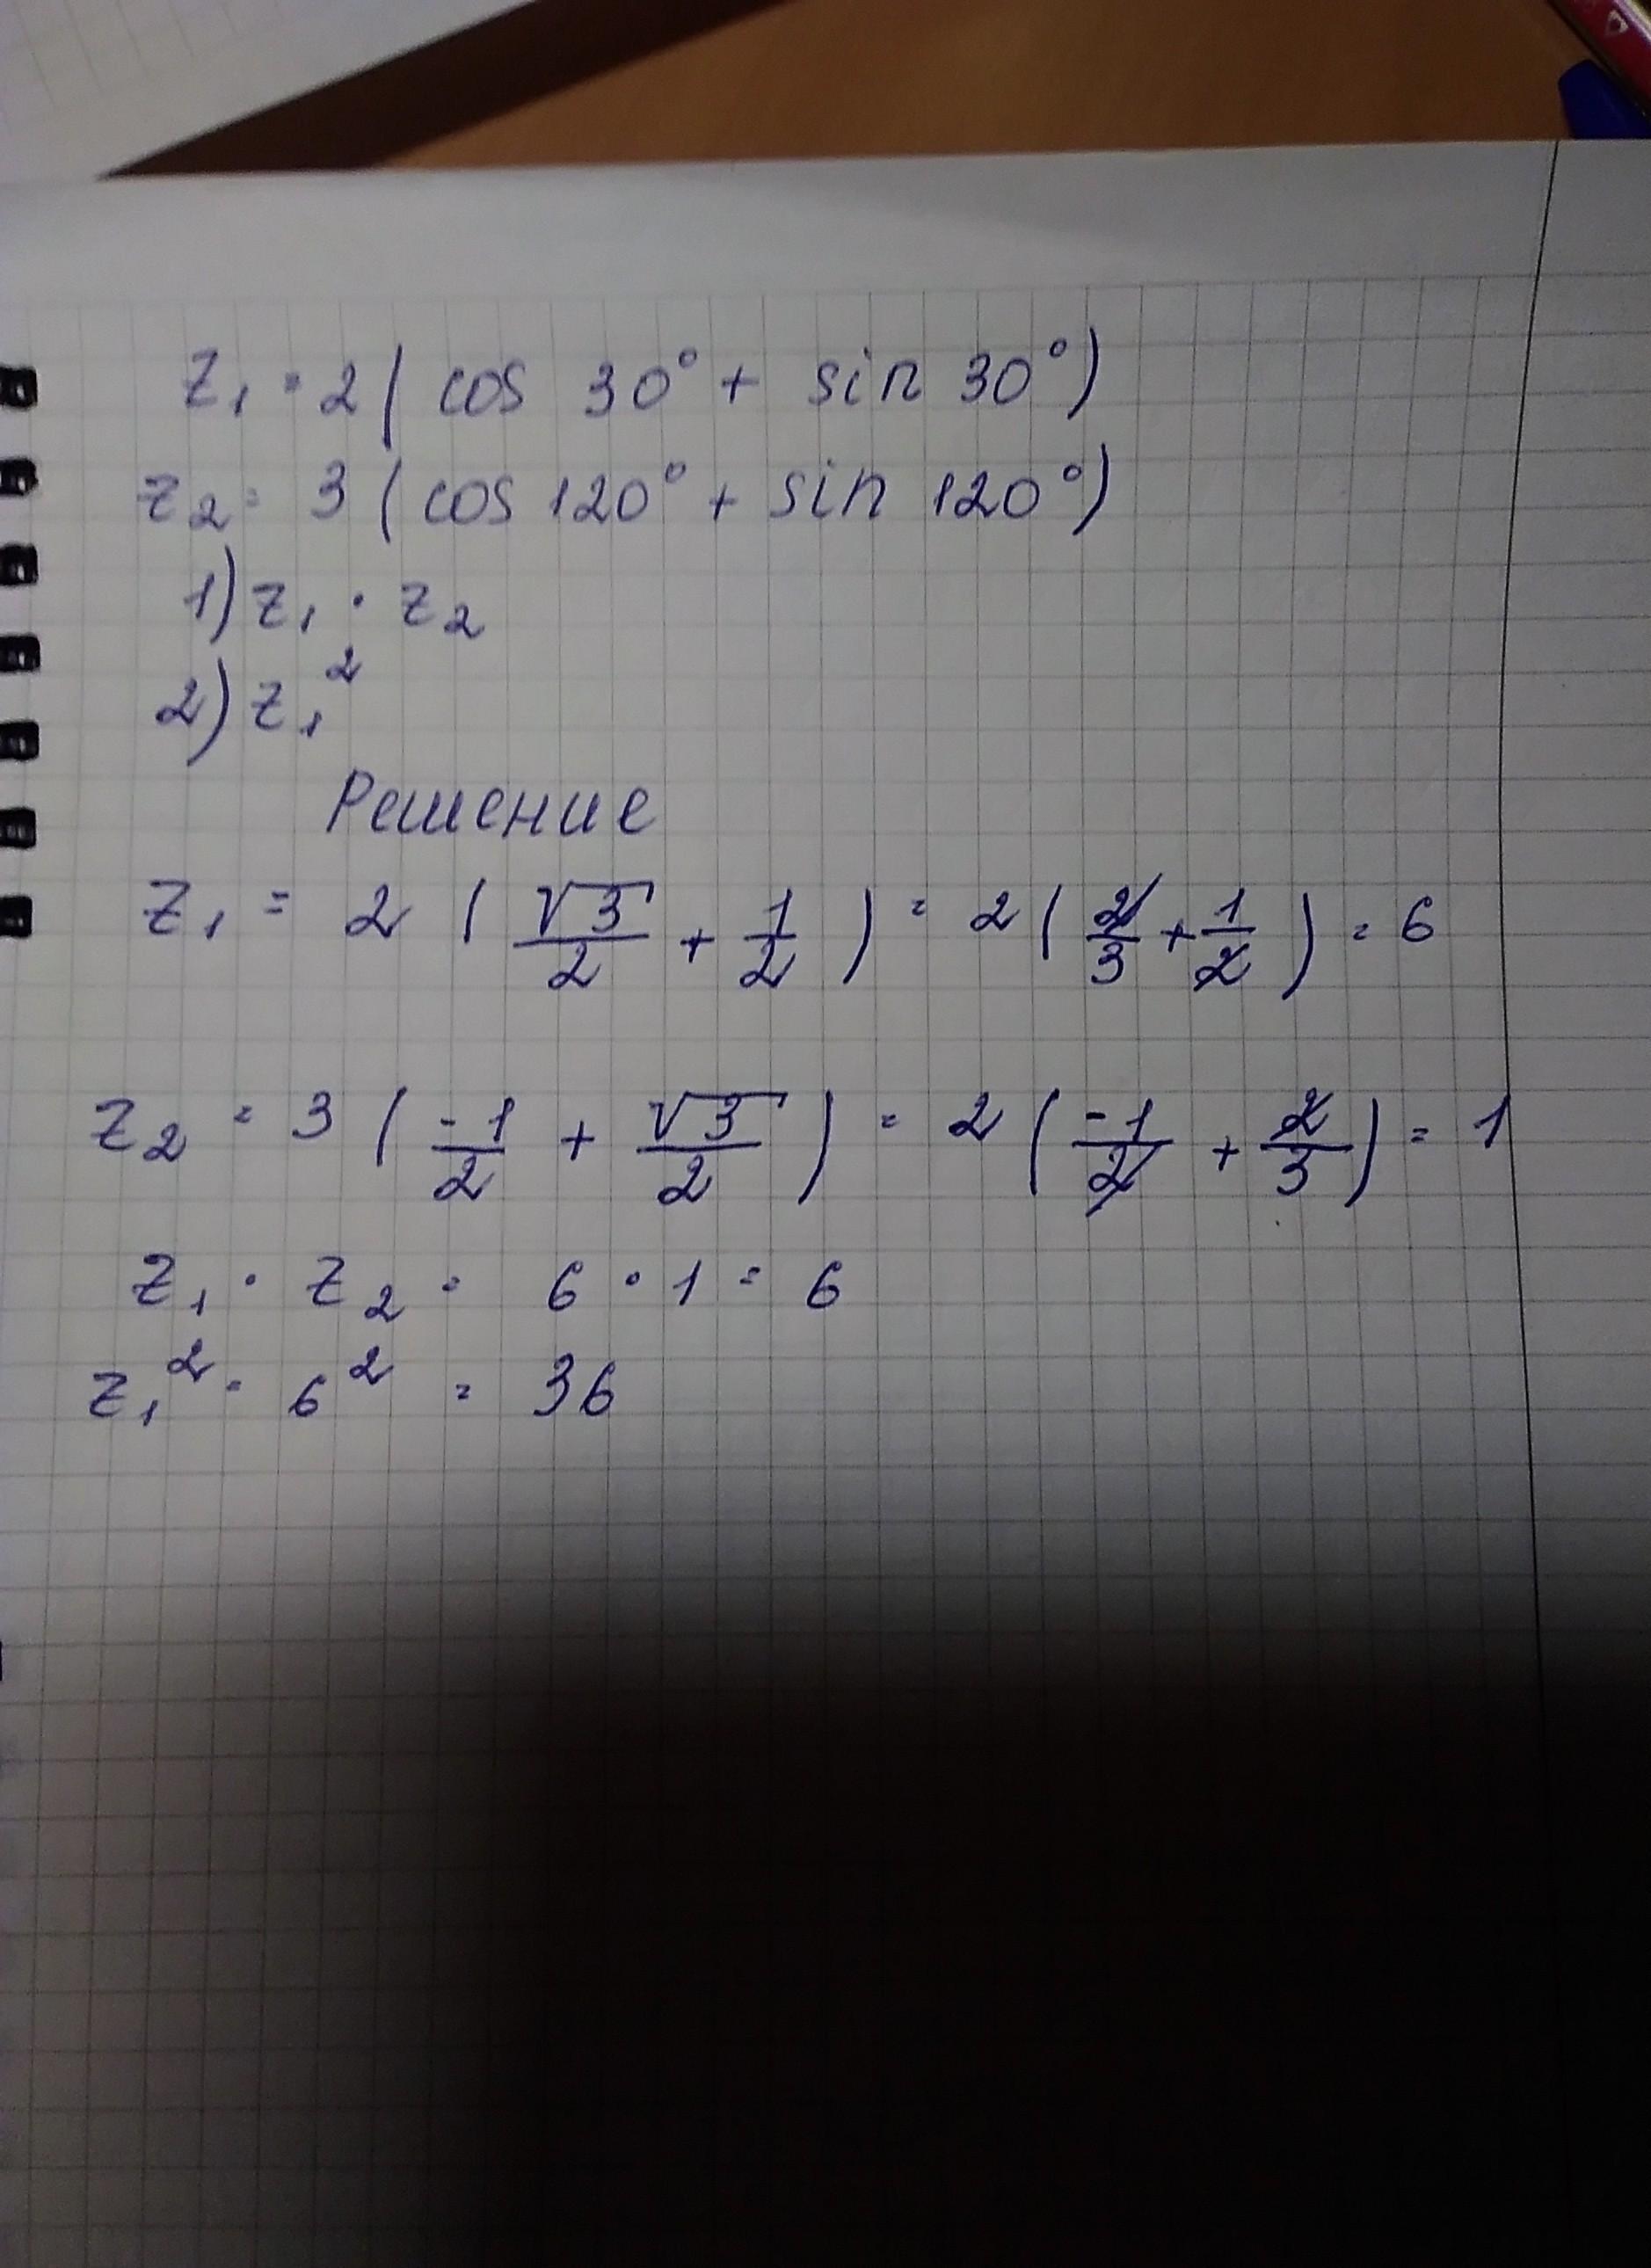 z₁ = 2 ( cos 30° + sin 30°)
z₂ = 3 ( cos 120° + sin 120°)
1) z₁ · z₂
2) z₁²
Решение
z₁ = 2 ( √3/2 + 1/2 ) = 2 ( 2/3 + 1/2 ) = 6
z₂ = 3 ( -1/2 + √3/2 ) = 2 ( -1/2 + 2/3 ) = 1
z₁ · z₂ = 6 · 1 = 6
z₁² = 6² = 36